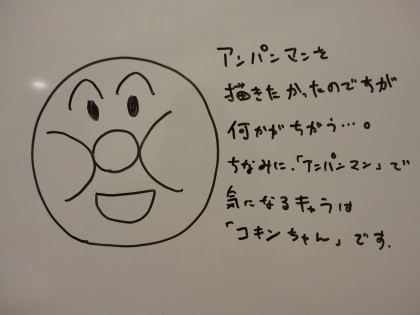 アンパンマンを
描きたかったのですが
何かがちがう…。
ちなみに、「アンパンマン」で
気になるキャラは
「コキンちゃん」です.